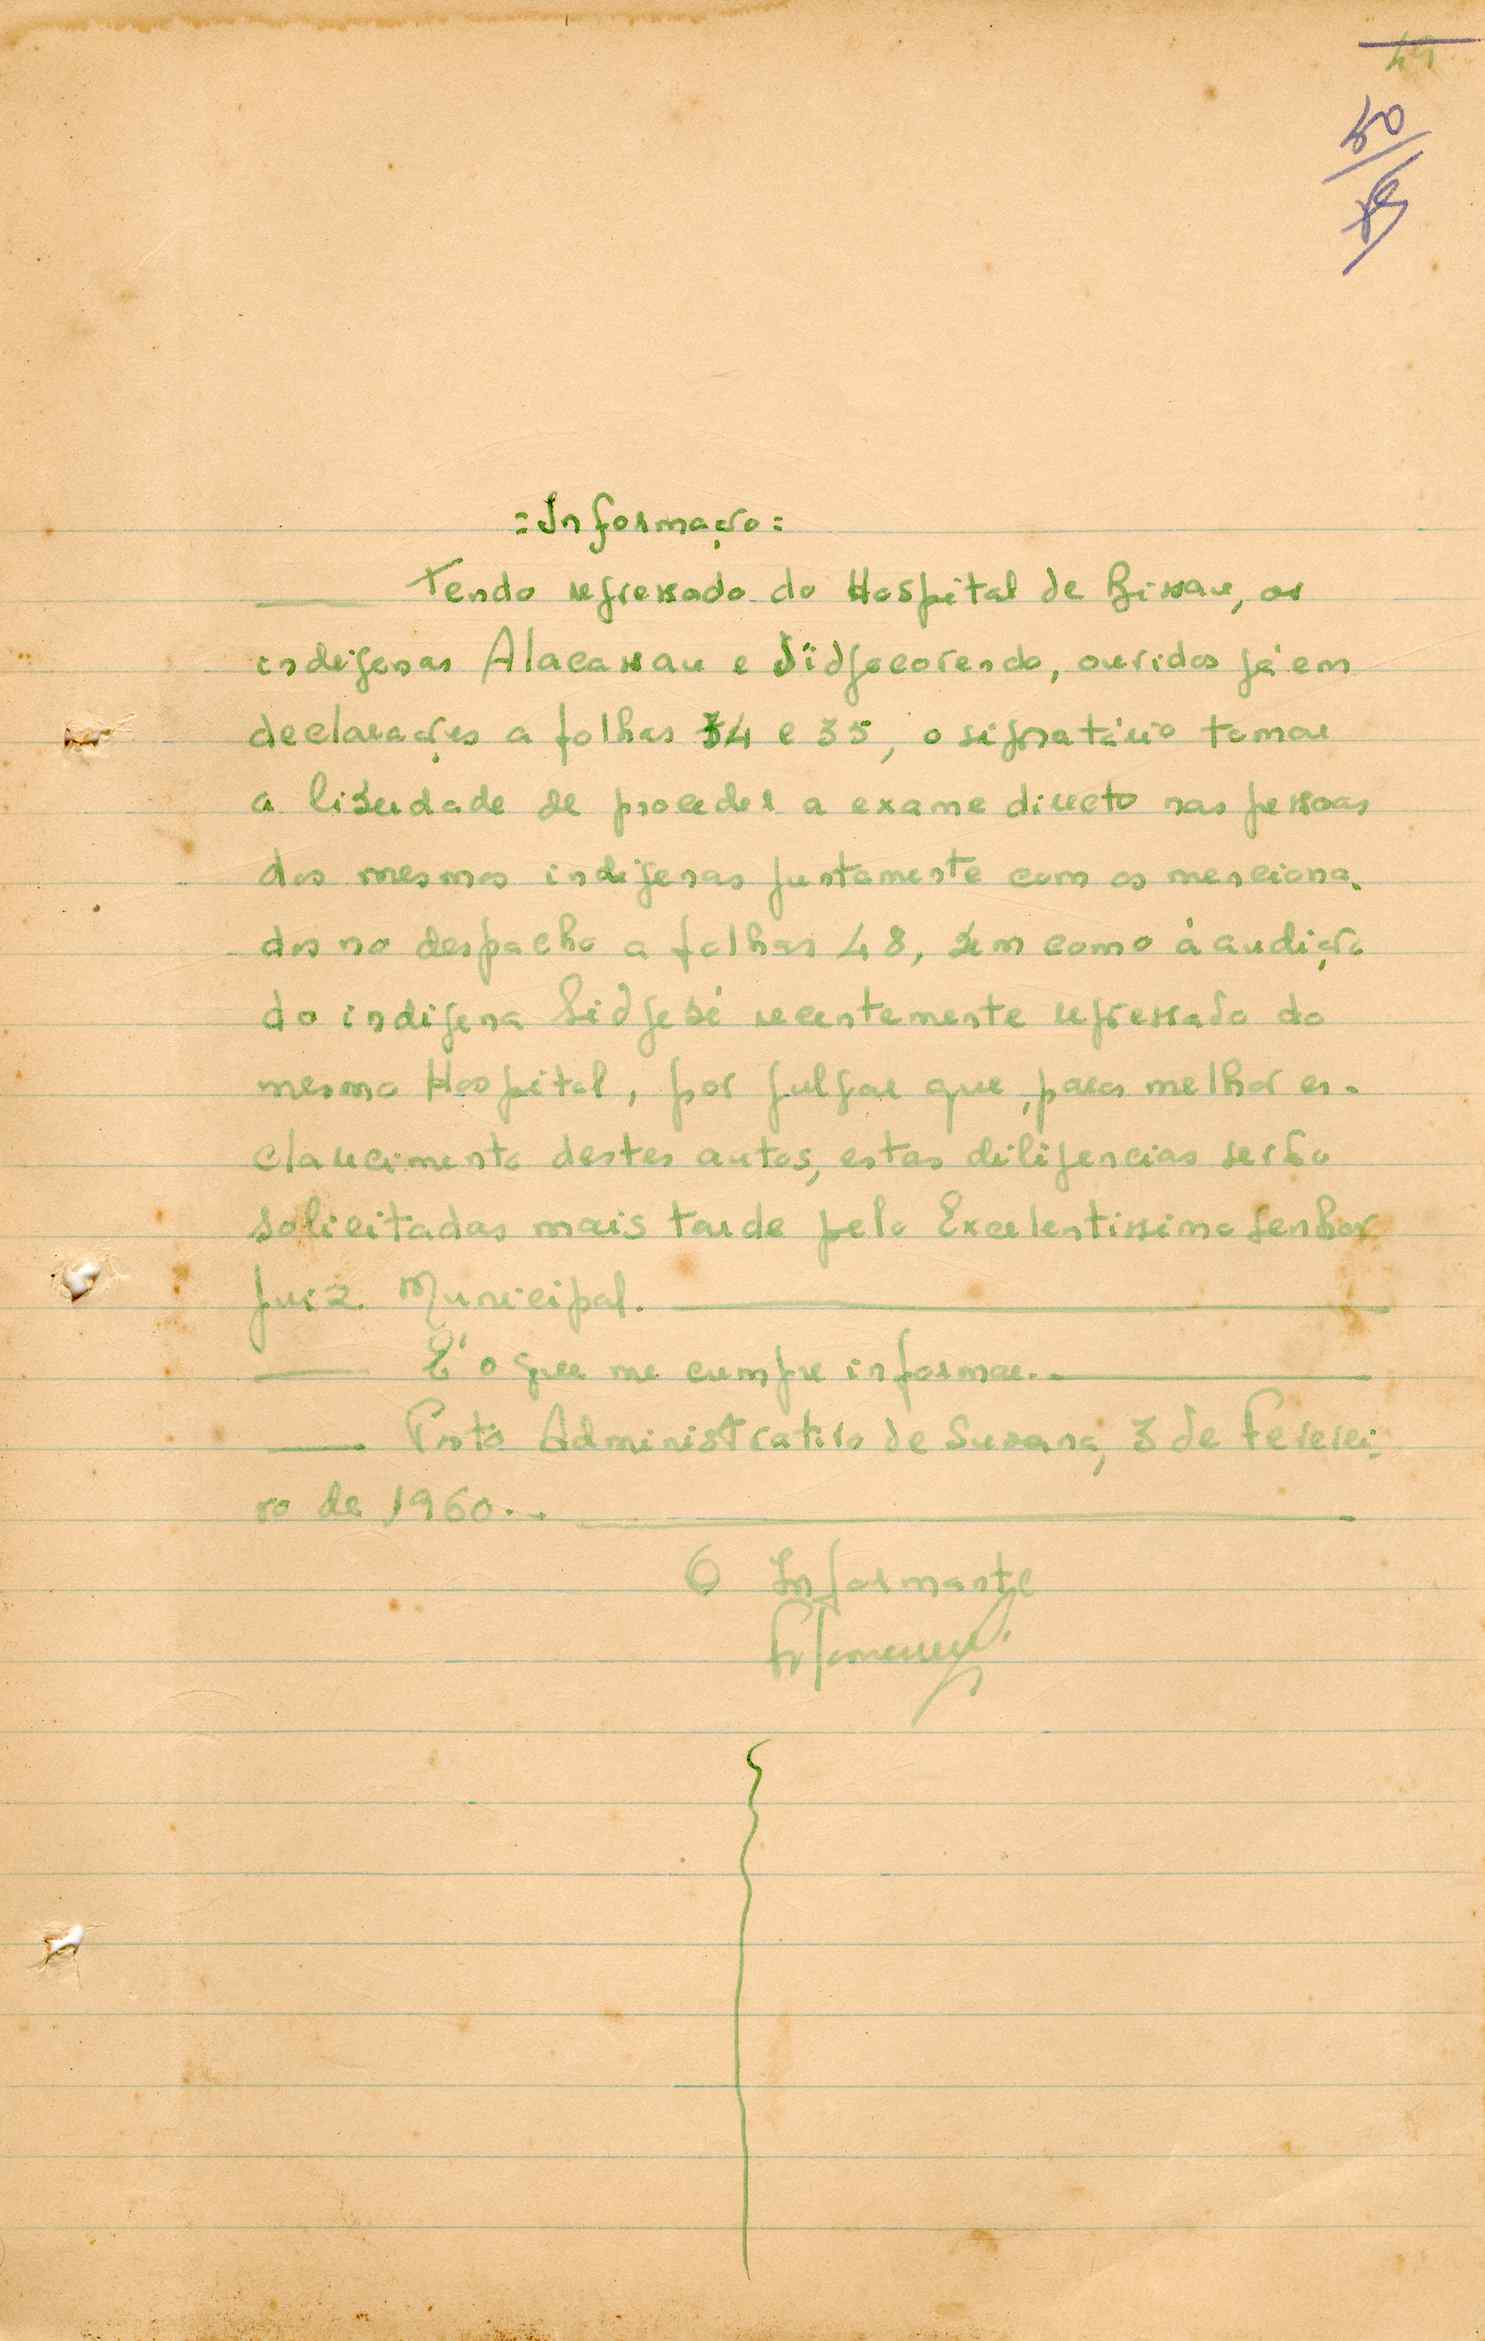 49
50
=Informação=
Tendo regressado do Hospital de Bissau, os
indígenas Alacassau e Sidjocorendo, ouvidos já em
declarações a folhas 34 e 35, o signatário tomou
a liberdade de proceder a exame directo nas pessoas
dos mesmos indígenas juntamente com os menciona-
dos no despacho a folhas 48, bem como à audição
do indígena Sidjebé recentemente regressado do
mesmo Hospital, por julgar que, para melhor es-
clarecimento destes autos, estas diligencias serão
solicitadas mais tarde pelo Excelentissimo Senhor
Juiz Municipal.
É o que me cumpre informar.
Posto Administrativo de Susana, 3 de Feverei-
ro de 1960..
O Informante